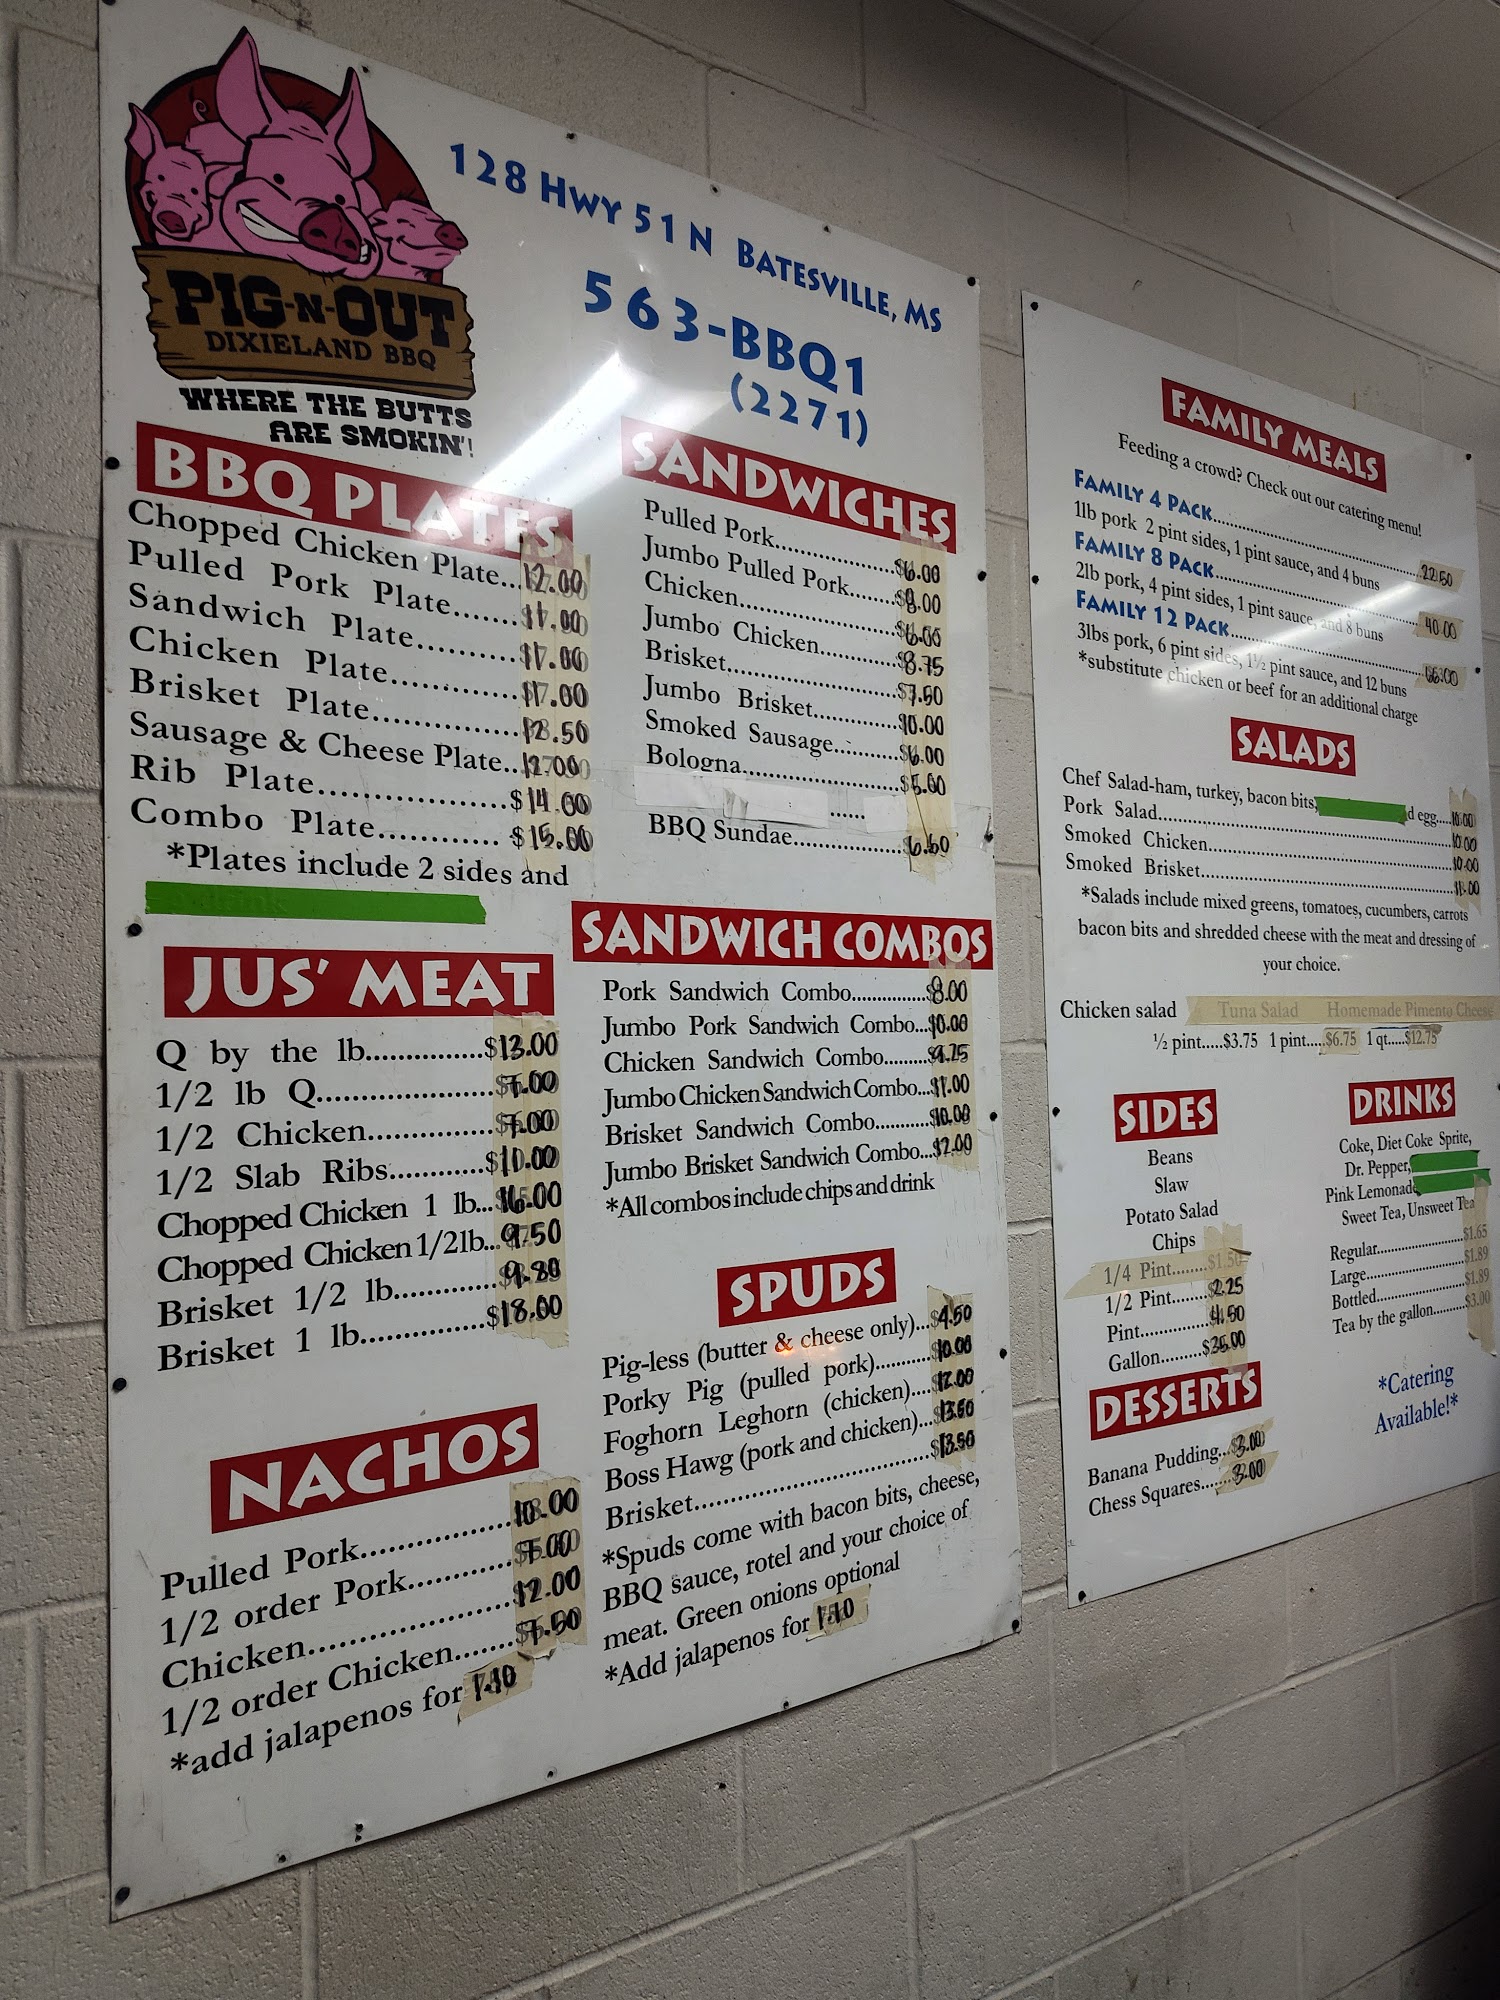 PIG-N-OUT
DIXIELAND BBQ
WHERE THE BUTTS
ARE SMOKIN'!
128 HWY 51 N BATESVILLE, MS
563-BBQ1
(2271)
BBQ PLATES
Chopped Chicken Plate...12.00
Pulled Pork Plate.......
Sandwich Plate..........
Chicken Plate............
Brisket Plate..............
Sausage & Cheese Plate...
Rib Plate....................$14.00
Combo Plate.............$15.00
*Plates include 2 sides and
JUS' MEAT
Q by the lb................$13.00
1/2 lb Q.....................7.00
1/2 Chicken...............7.00
1/2 Slab Ribs............
Chopped Chicken 1 lb...16.00
Chopped Chicken 1/2lb...9.50
Brisket 1/2 lb.............
Brisket 1 lb................$18.00
NACHOS
Pulled Pork..................10.00
1/2 order Pork.............
Chicken......................12.00
1/2 order Chicken......7.50
*add jalapenos for 1.10
SANDWICHES
Pulled Pork..............$6.00
Jumbo Pulled Pork......
Chicken...................
Jumbo Chicken..........$8.75
Brisket.....................$7.50
Jumbo Brisket...........10.00
Smoked Sausage.........$6.00
Bologna....................
BBQ Sundae..............
SANDWICH COMBOS
Pork Sandwich Combo..............
Jumbo Pork Sandwich Combo...10.00
Chicken Sandwich Combo.........
Jumbo Chicken Sandwich Combo...11.00
Brisket Sandwich Combo..........10.00
Jumbo Brisket Sandwich Combo...
*All combos include chips and drink
SPUDS
Pig-less (butter & cheese only)...$4.50
Porky Pig (pulled pork)...........10.00
Foghorn Leghorn (chicken)....12.00
Boss Hawg (pork and chicken)...13.50
Brisket...............................$13.50
*Spuds come with bacon bits, cheese,
BBQ sauce, rotel and your choice of
meat. Green onions optional
*Add jalapenos for 1.10
FAMILY MEALS
Feeding a crowd? Check out our catering menu!
FAMILY 4 PACK.......................22.50
1lb pork 2 pint sides, 1 pint sauce, and 4 buns
FAMILY 8 PACK.......................40.00
2lb pork, 4 pint sides, 1 pint sauce, and 8 buns
FAMILY 12 PACK.....................
3lbs pork, 6 pint sides, 1½ pint sauce, and 12 buns
*substitute chicken or beef for an additional charge
SALADS
Chef Salad-ham, turkey, bacon bits, d egg....10.00
Pork Salad..........................10.00
Smoked Chicken...................10.00
Smoked Brisket....................11.00
*Salads include mixed greens, tomatoes, cucumbers, carrots
bacon bits and shredded cheese with the meat and dressing of
your choice.
Chicken salad Tuna Salad Homemade Pimento Cheese
½ pint.....$3.75 1 pint....$6.75 1 qt.....$12.75
SIDES
Beans
Slaw
Potato Salad
Chips
1/4 Pint........$1.50
1/2 Pint.......$2.25
Pint.............4.50
Gallon........
DESSERTS
Banana Pudding...3.00
Chess Squares......3.00
DRINKS
Coke, Diet Coke Sprite,
Dr. Pepper,
Pink Lemonade
Sweet Tea, Unsweet Tea
Regular................$1.65
Large...................$1.89
Bottled................$1.89
Tea by the gallon.........$3.00
*Catering
Available!*